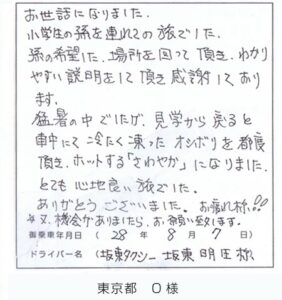 お世話になりました.
小学生の孫を連れての旅でした.
孫の希望した、場所を回って頂き、わかり
やすい説明をして頂き感謝してあり
ます.
猛暑の中でしたが、見学から戻ると
車中にて冷たく凍ったオシボリを都度
頂き、ホットする「さわやか」になりました.
とても心地良い旅でした.
ありがとうございました. お疲れ様!!
又、機会がありましたら、お願い致します.
御乗車年月日 ( 28 年 8 月 7 日 )
ドライバー名 ( 坂東タクシー 坂東 明圧 様
東京都 O 様